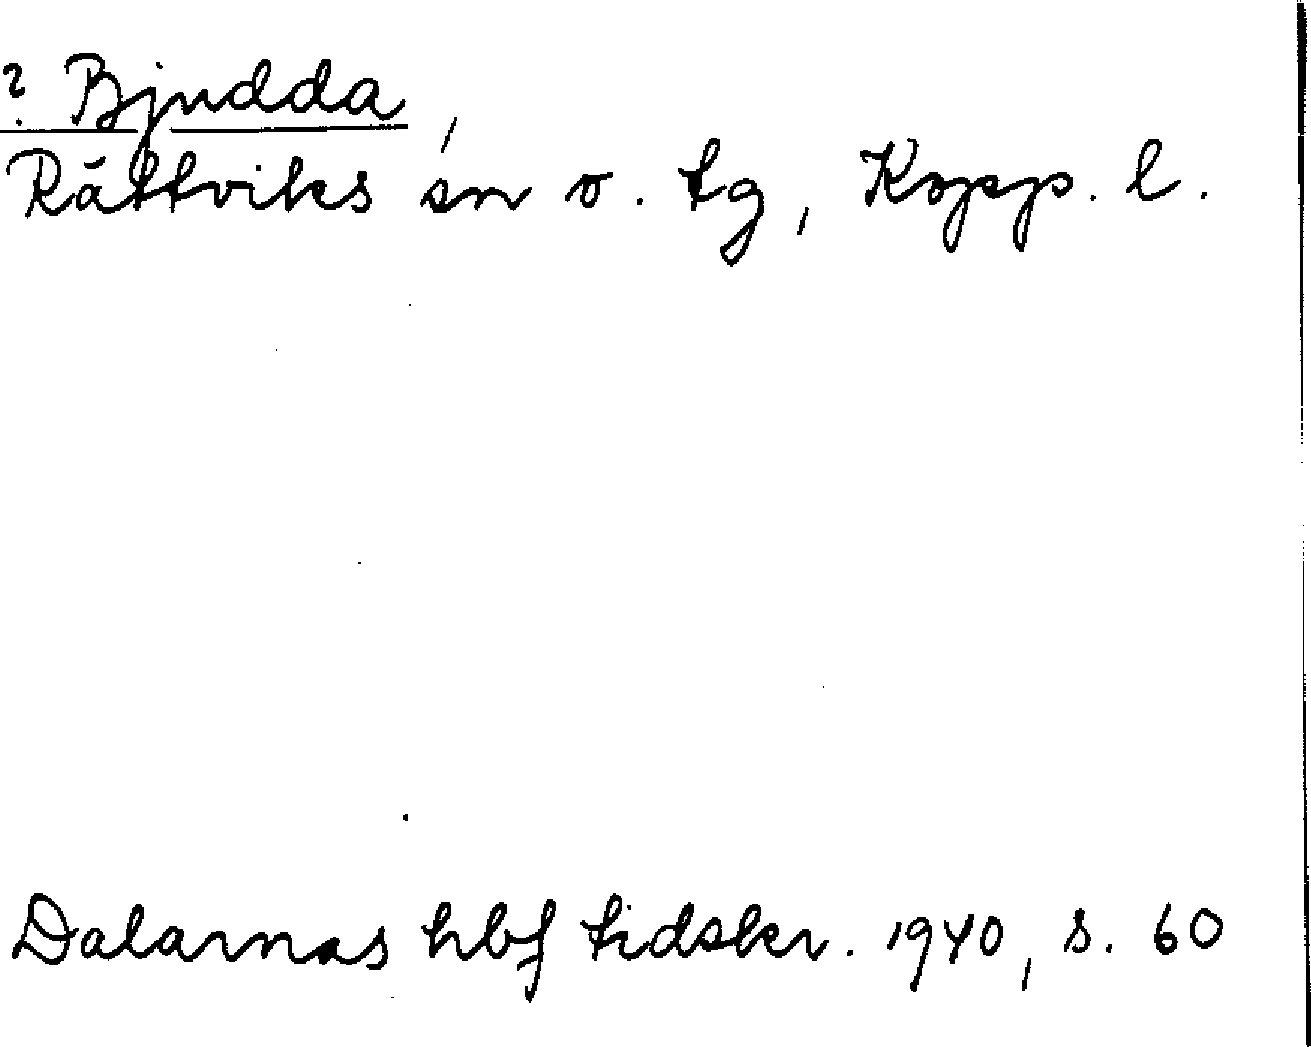 ? Bjudda,
Rättviks sn o. tg, Kopp. l.
Dalarnas hbf tidskr. 1940, s. 60